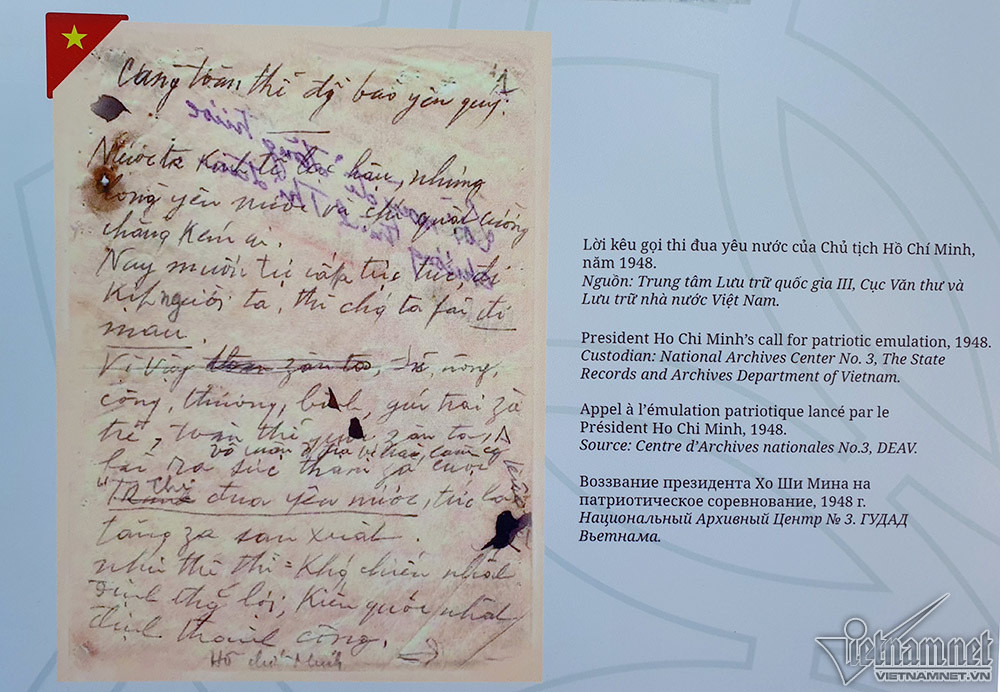 Cùng toàn thể đồng bào yêu quý.
Nước ta kinh tế lạc hậu, nhưng
lòng yêu nước và chí quật cường
chẳng kém ai.
Nay muốn tự cấp tự túc, đi
kịp người ta, thì chúng ta fải đi
mau.
Vì vậy zân ta, sĩ, nông,
công, thương, binh, gái trai zà
trẻ, toàn thể zân ta,
fải ra sức tham za cuộc
"Thi đua yêu nước, tức là
tăng za sản xuất.
như thế thì = Khg chiến nhất
định thg lợi, Kiến quốc nhất
định thành công.
Hồ Chí Minh
Lời kêu gọi thi đua yêu nước của Chủ tịch Hồ Chí Minh,
năm 1948.
Nguồn: Trung tâm Lưu trữ quốc gia III, Cục Văn thư và
Lưu trữ nhà nước Việt Nam.
President Ho Chi Minh's call for patriotic emulation, 1948.
Custodian: National Archives Center No. 3, The State
Records and Archives Department of Vietnam.
Appel à l'émulation patriotique lancé par le
Président Ho Chi Minh, 1948.
Source: Centre d'Archives nationales No.3, DEAV.
Воззвание президента Хо Ши Мина на
патриотическое соревнование, 1948 г.
Национальный Архивный Центр № 3. ГУДАД
Вьетнама.
Vietnamnet
VIETNAMNET.VN